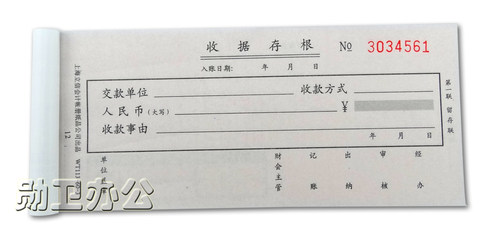 收据存根 № 3034561
入账日期： 年 月 日
交款单位 收款方式
人民币（大写） ￥
收款事由
年 月 日
单位盖章 财会主管 记账 出纳 审核 经办
第一联 留存联
上海立信会计账册纸品公司出品
勋卫办公